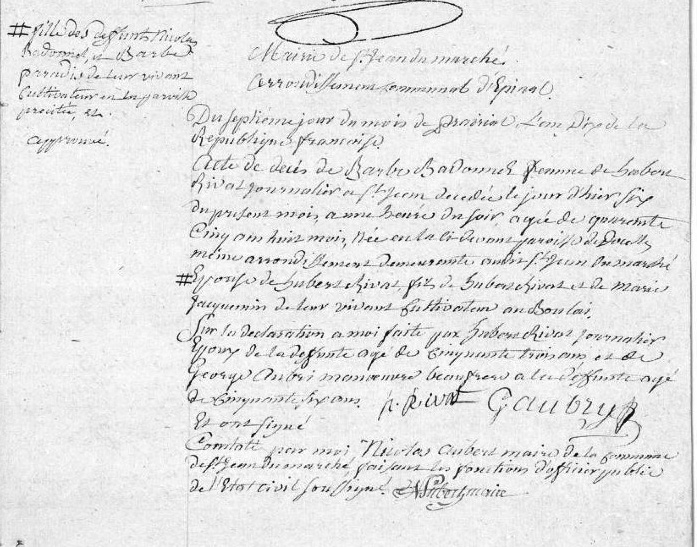 # fille de deffunt Nicolas
Badonnel, et Barbe
paradis de leur vivant
Cultivateur en la paroisse
approuvé.
Mairie de St Jean du marché.
arrondissement communal d'Epinal.
Du septième jour du mois de prairial l'an Dix de la
République françoise
Acte de décès de Barbe Badonnel femme de hubert
Rivat journalier a St Jean decedée le jour d'hier six
du present mois, a une heure du soir, agée de quarente
Cinq ans huit mois, Née en la ci devant paroisse de Docelle
même arrondissement demeurente audit St Jean du marché
# Epouse de hubert Rivat, fils de hubert Rivat et de Marie
Jacquemin de leur vivant Cultivateur au Boulai.
Sur la déclaration a moi faite par hubert Rivat journalier
Epoux de la deffunte agé de Cinquante trois ans et de
George Aubri manoeuvre beaufrere a la deffunte agé
de Cinquante six ans. h. Rivat G aubry
Et ont signé
Constaté par moi, Nicolas Aubert maire de la Commune
de St Jean du marché, faisant les fonctions d'officier public
de l'Etat Civil soussigné.